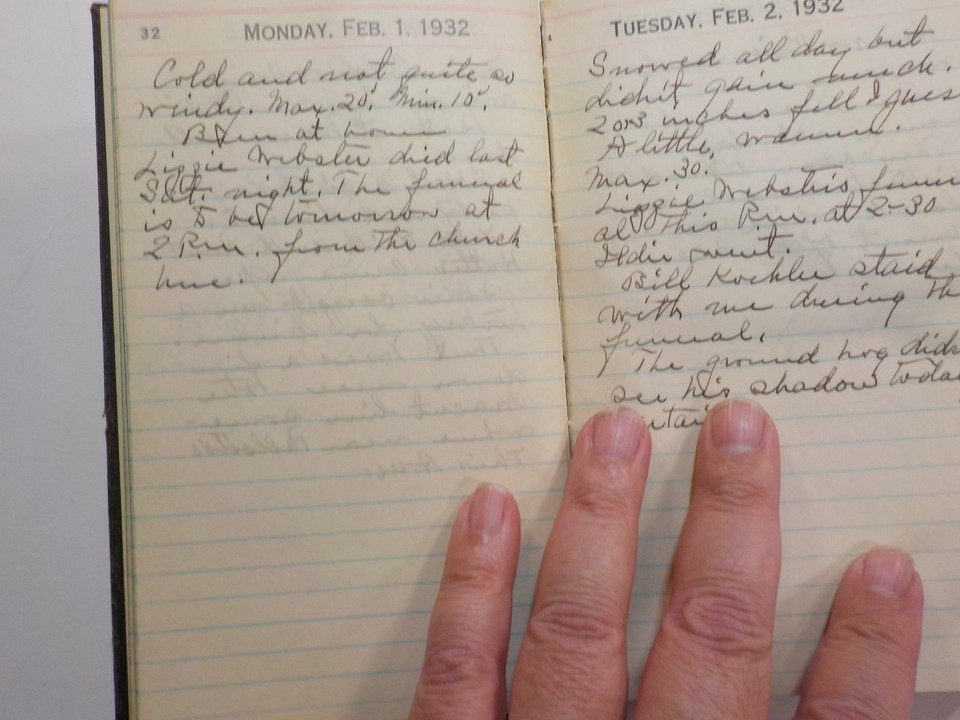 32
MONDAY, FEB. 1, 1932
Cold and not quite so
windy. Max. 20°. Min. 10°.
at home
Lizzie Webster died last
Sat. night. The funeral
is to be tomorrow at
2 P.m. from the church
here.
TUESDAY, FEB. 2, 1932
Snowed all day but
didn't gain much.
2 or 3 inches fell I gues
A little, warmer.
Max. 30.
Lizzie Websters funer
this P.m. at 2-30
Eddie went.
Bill Koehler staid
with me during th
funeral.
The ground hog didn
see his shadow toda